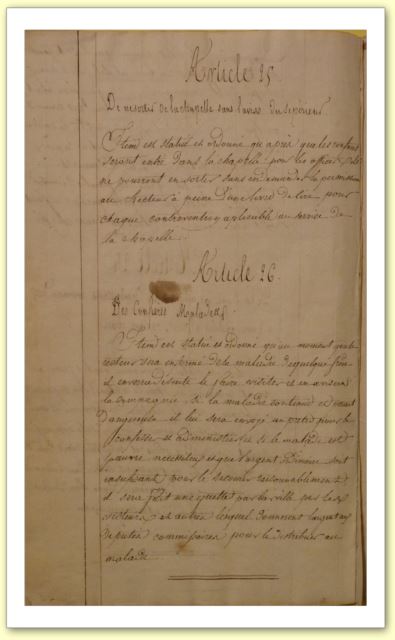 Article 25
De ne sortir de la chapelle sans l'aviso du supérieur
Item est statué et ordonné qu'après que les confreres
seront entré dans la chapelle pour les offices, ils
ne pourront en sortir sans en demander la permission
au Recteur à peine d'une livre de cire pour
chaque contreventen applicable au service de
la chapelle.
Article 26
Des Confrères Malades
Item est statué et ordonné qu'au moment que le
recteur sera informé de la maladie de quelque frère
il enverra de suite le faire visiter et en avisera
la compagnie. Si la maladie continue et étant
dangereuse il lui sera envoyé un prêtre pour le
confesser et administrer si le malade est
pauvre necessiteux et que l'argent sont
insufisant pour le secourir raisonnablement
il sera fait une quette par la ville par les
recteurs et autres lesquels donneront l'argent aux
députés commissaires pour le distribuer au
malade